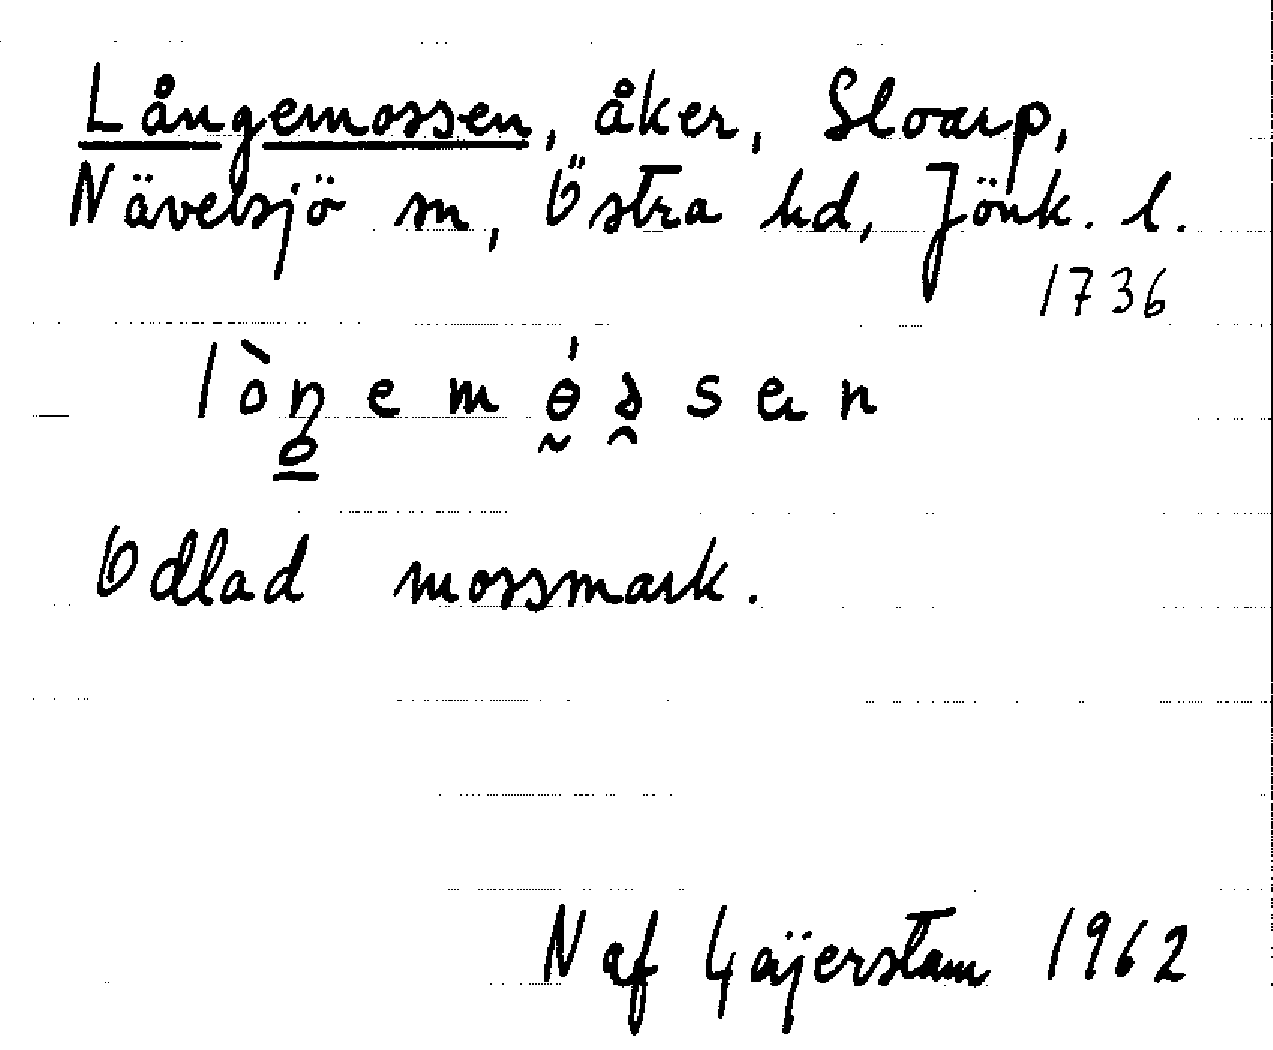 Långemossen, åker, Sloarp,
Nävelsjö sn, Östra hd, Jönk. l.
1736
Odlad mossmark.
N af Gaÿerstam 1962